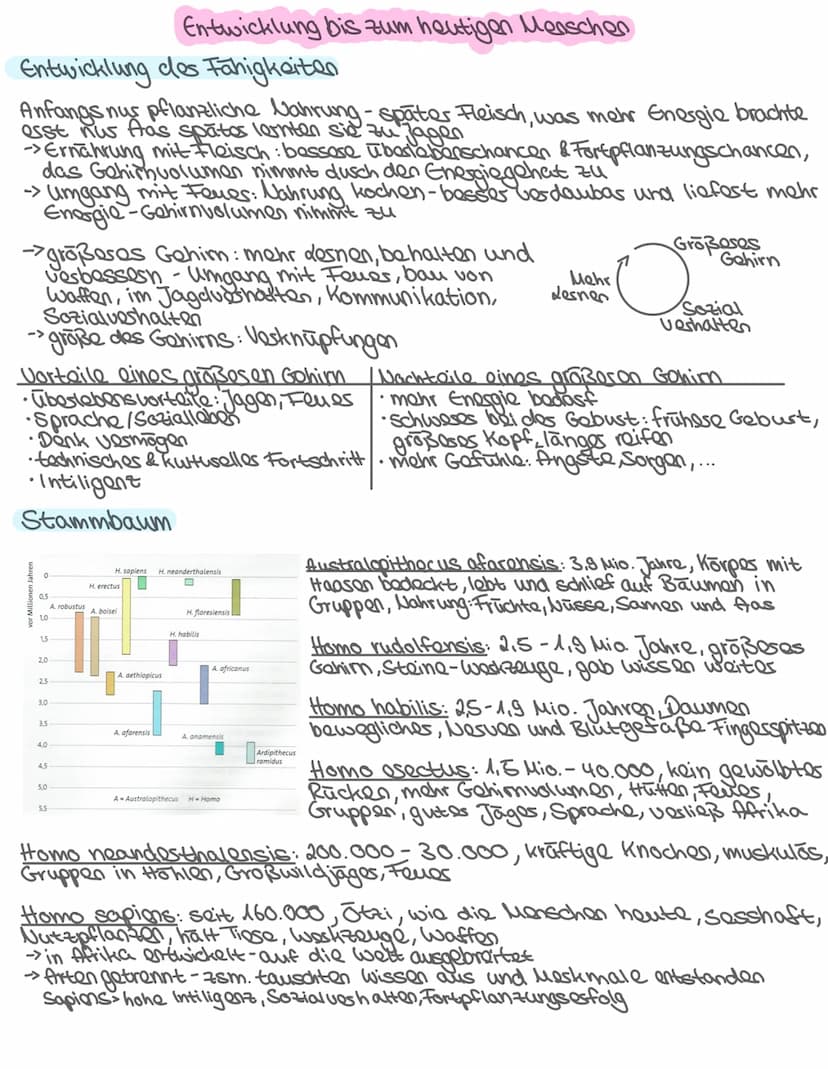 Entwicklung bis zum heutigen Menschen
Entwicklung der Fähigkeiten
Anfangs nur pflanzliche Nahrung - später Fleisch, was mehr Energie brachte
erst nur Aas später lernten sie zu jagen
-> Ernährung mit Fleisch: bessere Überlebenschancen & Fortpflanzungschancen,
das Gehirnvolumen nimmt durch den Energiegehalt zu
-> Umgang mit Feuer: Nahrung kochen - besser verdaubar und liefert mehr
Energie - Gehirnvolumen nimmt zu
-> größeres Gehirn: mehr lernen, behalten und
verbessern - Umgang mit Feuer, bau von
Waffen, im Jagdverhalten, Kommunikation,
Sozialverhalten
-> größe des Gehirns: Verknüpfungen
Größeres
Gehirn
Mehr
lernen
Sozial
verhalten
Vorteile eines größeren Gehirn | Nachteile eines größeren Gehirn
· Überlebensvorteile: Jagen, Feuer
· Sprache/Sozialleben
· Denk vermögen
· technischer & kultureller Fortschritt
· Intiligent
· mehr Energie bedarf
· schwerer bei der Geburt: frühere Geburt,
größerer Kopf, länger reifen
· mehr Gefühle: Ängste, Sorgen, ...
Stammbaum
vor Millionen Jahren
0
0,5
1,0
1,5
2,0
2,5
3,0
3,5
4,0
4,5
5,0
5,5
H. sapiens
H. neanderthalensis
H. erectus
A. robustus
A. boisei
H. floresiensis
H. habilis
A. aethiopicus
A. africanus
A. afarensis
A. anamensis
Ardipithecus
ramidus
A = Australopithecus H = Homo
Australopithecus afarensis: 3,8 Mio. Jahre, Körper mit
Haaren bedeckt, lebt und schlief auf Bäumen in
Gruppen, Nahrung: Früchte, Nüsse, Samen und Aas
Homo rudolfensis: 2,5 - 1,9 Mio. Jahre, größeres
Gehirn, Steine-Werkzeuge, gab wissen weiter
Homo habilis: 2,5 - 1,9 Mio. Jahren, Daumen
beweglicher, Nerven und Blutgefäße Fingerspitzen
Homo erectus: 1,5 Mio. - 40.000, kein gewölbter
Rücken, mehr Gehirnvolumen, Hütten, Feuer,
Gruppen, guter Jäger, Sprache, verließ Afrika
Homo neanderthalensis: 200.000 - 30.000, kräftige Knochen, muskulös,
Gruppen in Höhlen, Großwildjäger, Feuer
Homo sapiens: seit 160.000, Ötzi, wie die Menschen heute, sesshaft,
Nutzpflanzen, hält Tiere, Werkzeuge, Waffen
-> in Afrika entwickelt - auf die Welt ausgebreitet
-> Arten getrennt - zsm. tauschten wissen aus und Merkmale entstanden
Sapiens > hohe Intiligenz, Sozialverhalten, Fortpflanzungserfolg